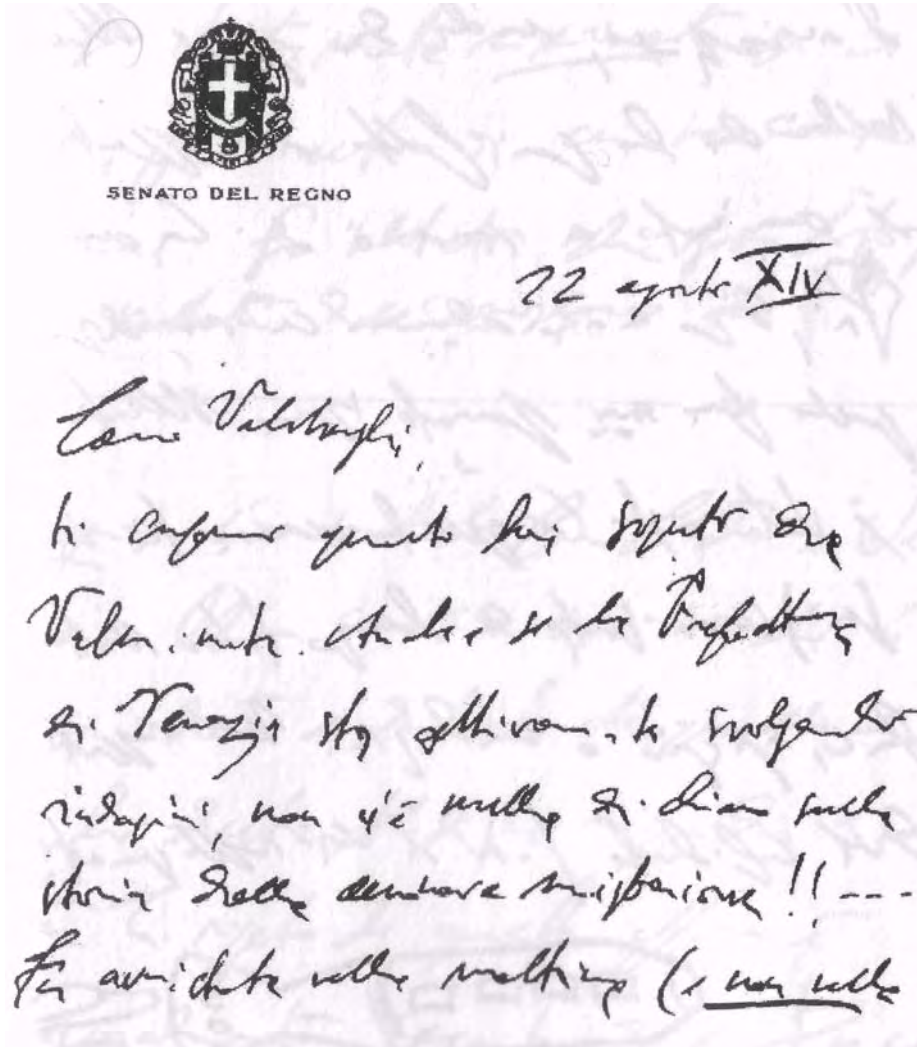 SENATO DEL REGNO
22 agosto XIV
Caro Valobraghi,
ti confermo quanto hai saputo da
Valminuta. Anche se la Prefettura
di Venezia sta attivamente svolgendo
indagini, non c'è nulla di chiaro sulla
storia della aeronave misteriosa!! ---
Fu avvistata nella mattina (e non nella